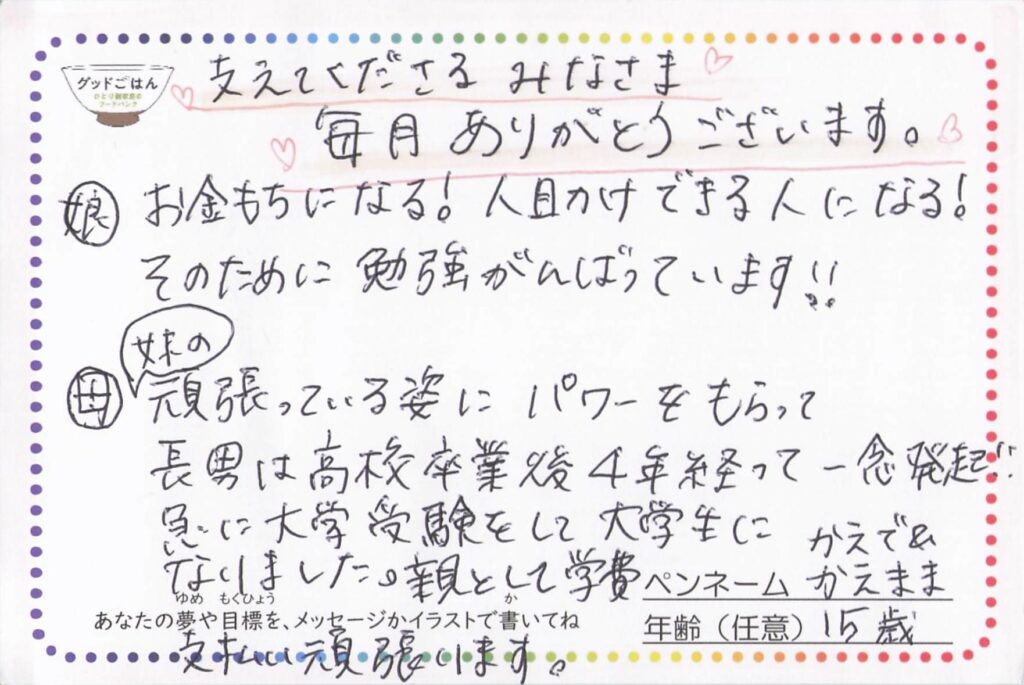 グッドごはん
ひとり親家庭の
フードバンク
支えてくださる みなさま
毎月 ありがとうございます。
娘 お金もちになる! 人助けできる人になる!
そのために 勉強がんばっています!!
妹の
母 頑張っている姿に パワーをもらって
長男は高校卒業後4年経って一念発起!!
急に大学受験をして大学生に
なりました。親として学費
かえで&
ペンネーム かえまま
ゆめ もくひょう か
あなたの夢や目標を、メッセージかイラストで書いてね
年齢(任意) 15歳
支払い頑張ります。